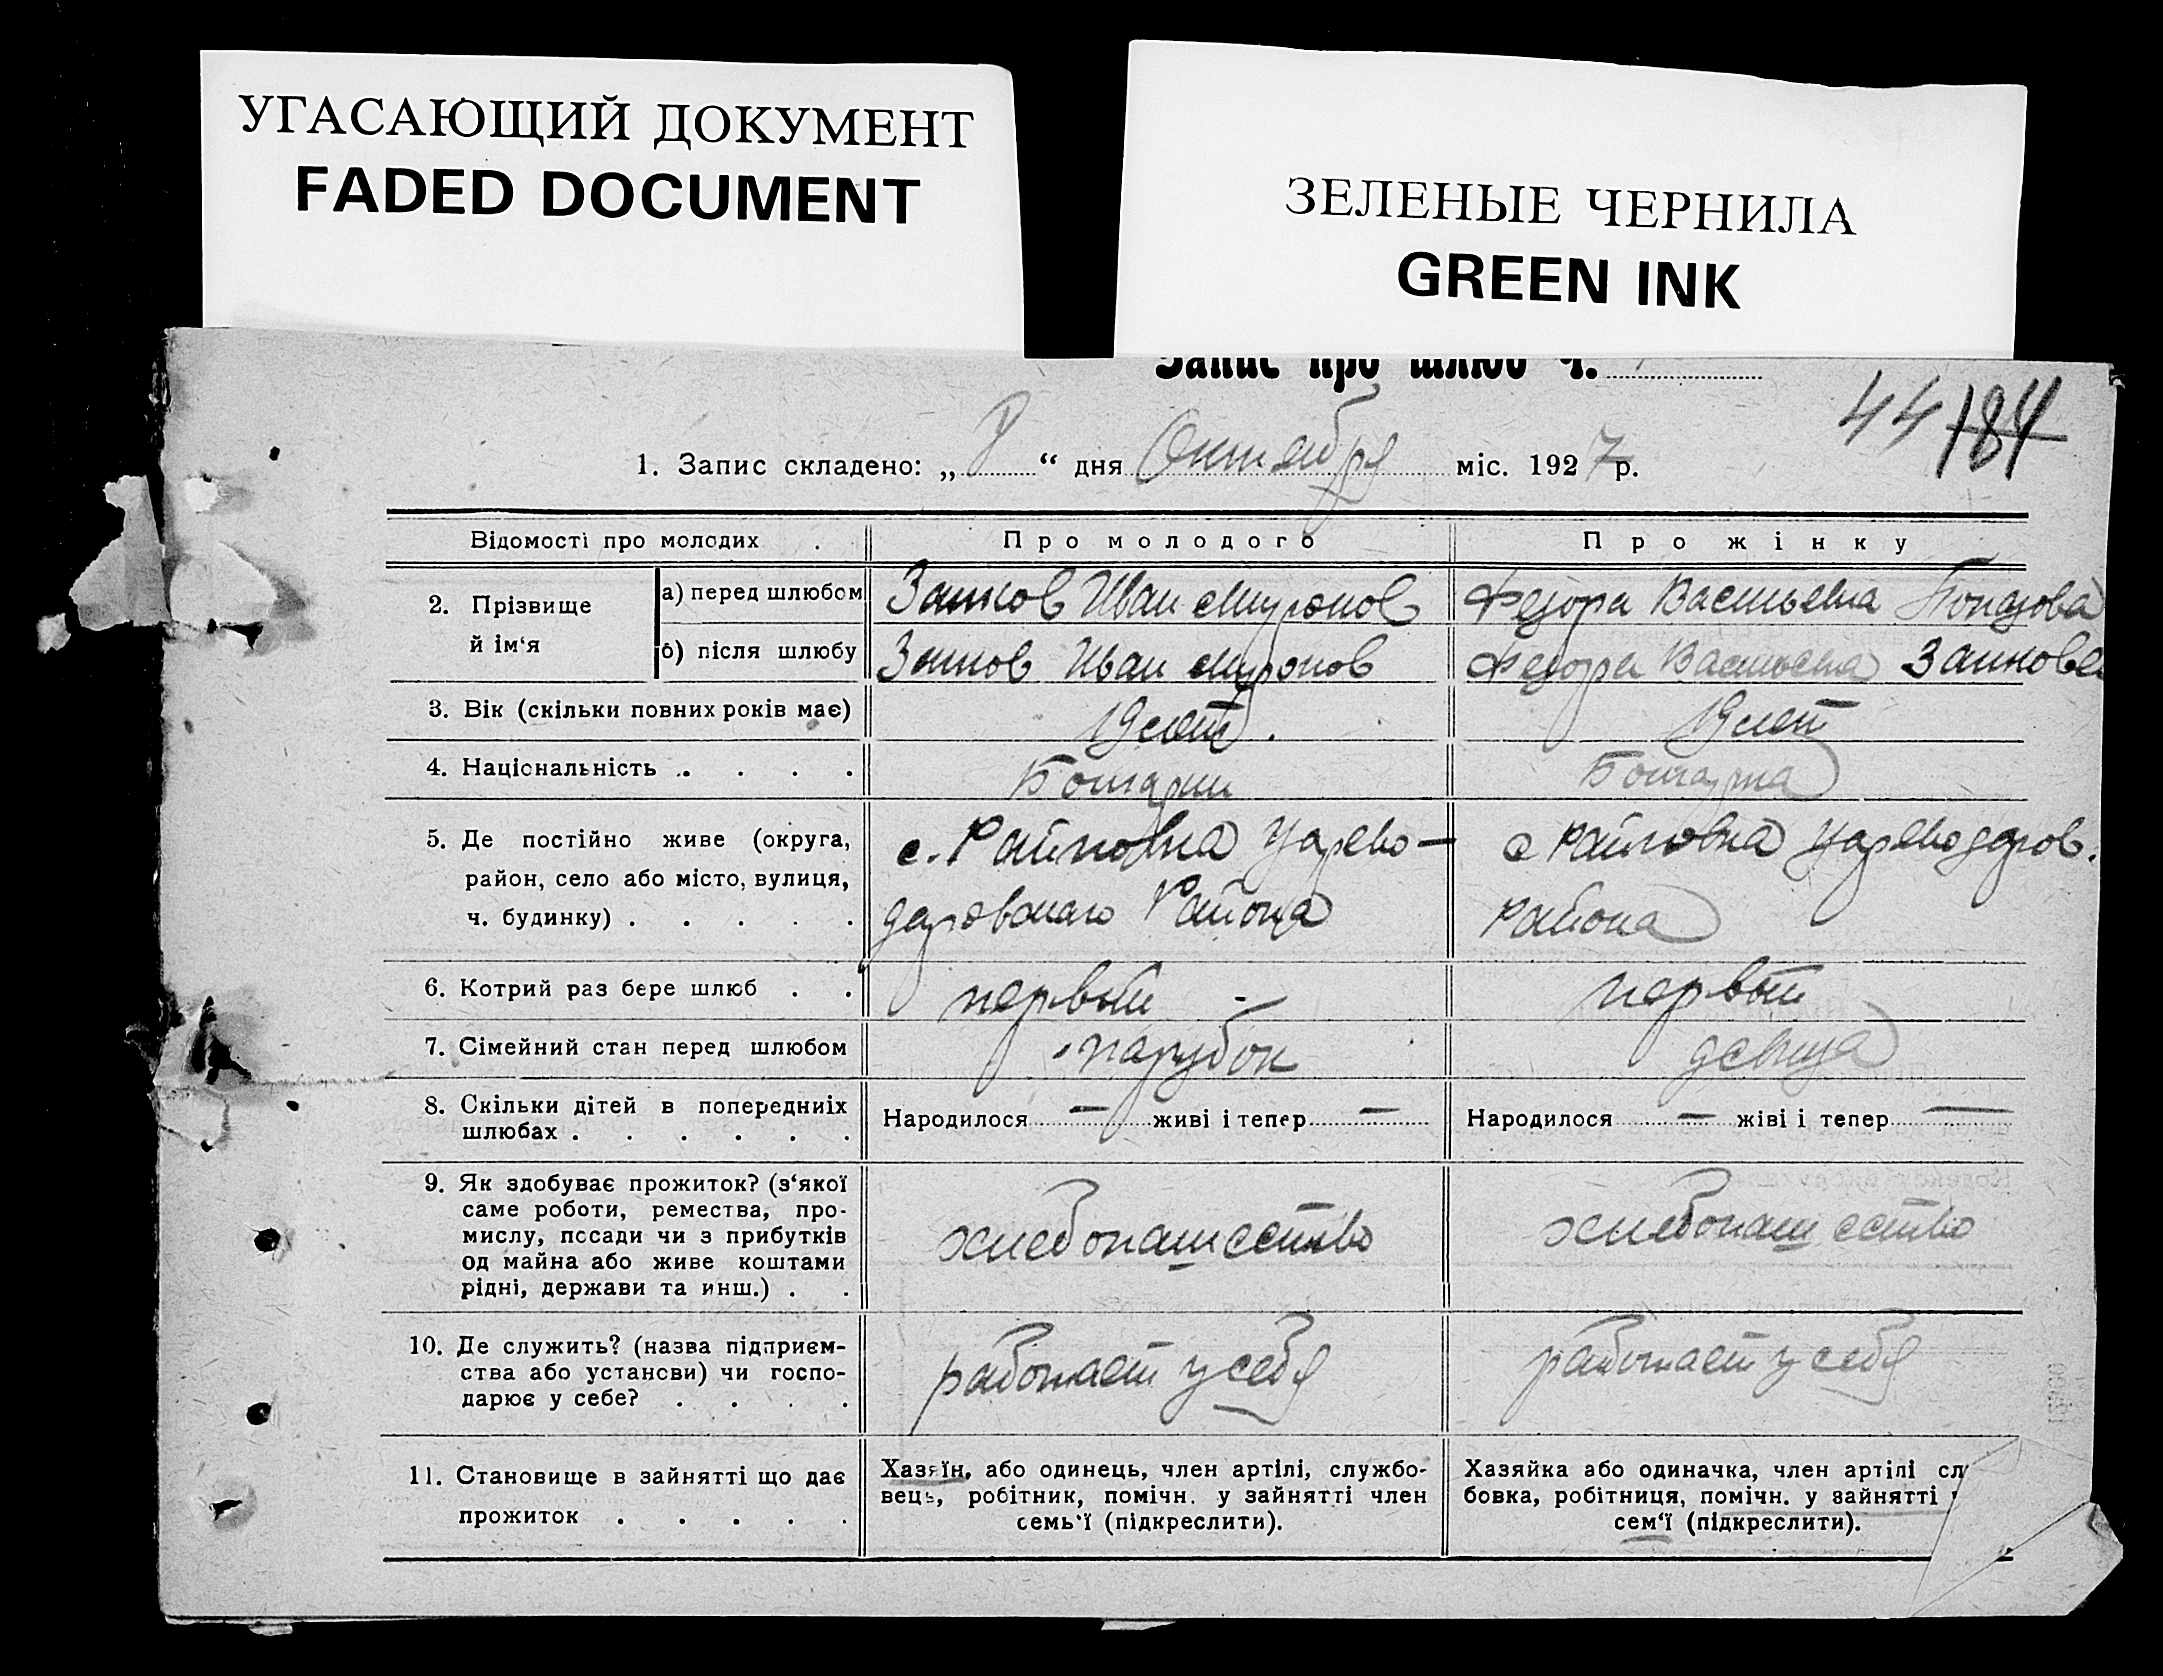 УГАСАЮЩИЙ ДОКУМЕНТ
FADED DOCUMENT
ЗЕЛЕНЫЕ ЧЕРНИЛА
GREEN INK
Запис про шлюб ч.
44 184
1. Запис складено: „ “ дня Октября міс. 1927 р.
Відомості про молодих . Про молодого Про жінку
2. Прізвище й ім‘я
а) перед шлюбом Иван Миронов Федора Васильевна
б) після шлюбу Иван Миронов Федора Васильевна
3. Вік (скільки повних років має) 19 лет. 19 лет
4. Національність . . . . Болгарин Болгарка
5. Де постійно живе (округа, с. Райновка Царево- с Райновка Цареводаров.
район, село або місто, вулиця, даровского Района Района
ч. будинку) . . . . .
6. Котрий раз бере шлюб . . первый первый
7. Сімейний стан перед шлюбом парубок девица
8. Скільки дітей в попередниіх Народилося — живі і тепер — Народилося — жіві і тепер —
шлюбах . . . . . .
9. Як здобуває прожиток? (з‘якої
саме роботи, ремества, про-
мислу, посади чи з прибутків хлебопашество хлебопашество
од майна або живе коштами
рідні, держави та инш.) . .
10. Де служить? (назва підприєм-
ства або установи) чи госпо- работает у себя работает у себя
дарює у себе? . . . .
11. Становище в зайнятті що дає Хазяїн, або одинець, член артілі, службо- Хазяйка або одиначка, член артілі
прожиток . . . . . вець, робітник, помічн. у зайнятті член бовка, робітниця, помічн. у зайнятті
семь‘ї (підкреслити). сем‘ї (підкреслити).